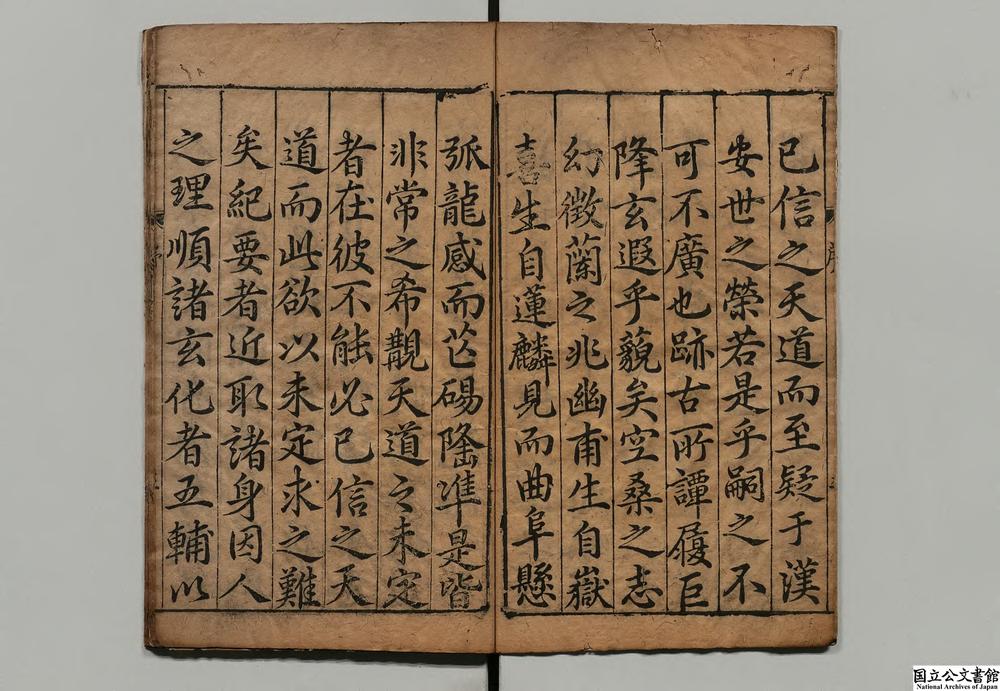 已信之天道而至疑于漢
安世之榮若是乎嗣之不
可不廣也跡古所譚履巨
降玄遐乎藐矣空桑之志
幻徵蘭之兆幽甫生自嶽
喜生自蓮麟見而曲阜懸
弧龍感而芒碭隆準是皆
非常之希覯天道之未定
者在彼不能必已信之天
道而此欲以未定求之難
矣紀要者近取諸身因人
之理順諸玄化者五輔以
国立公文書館
National Archives of Japan